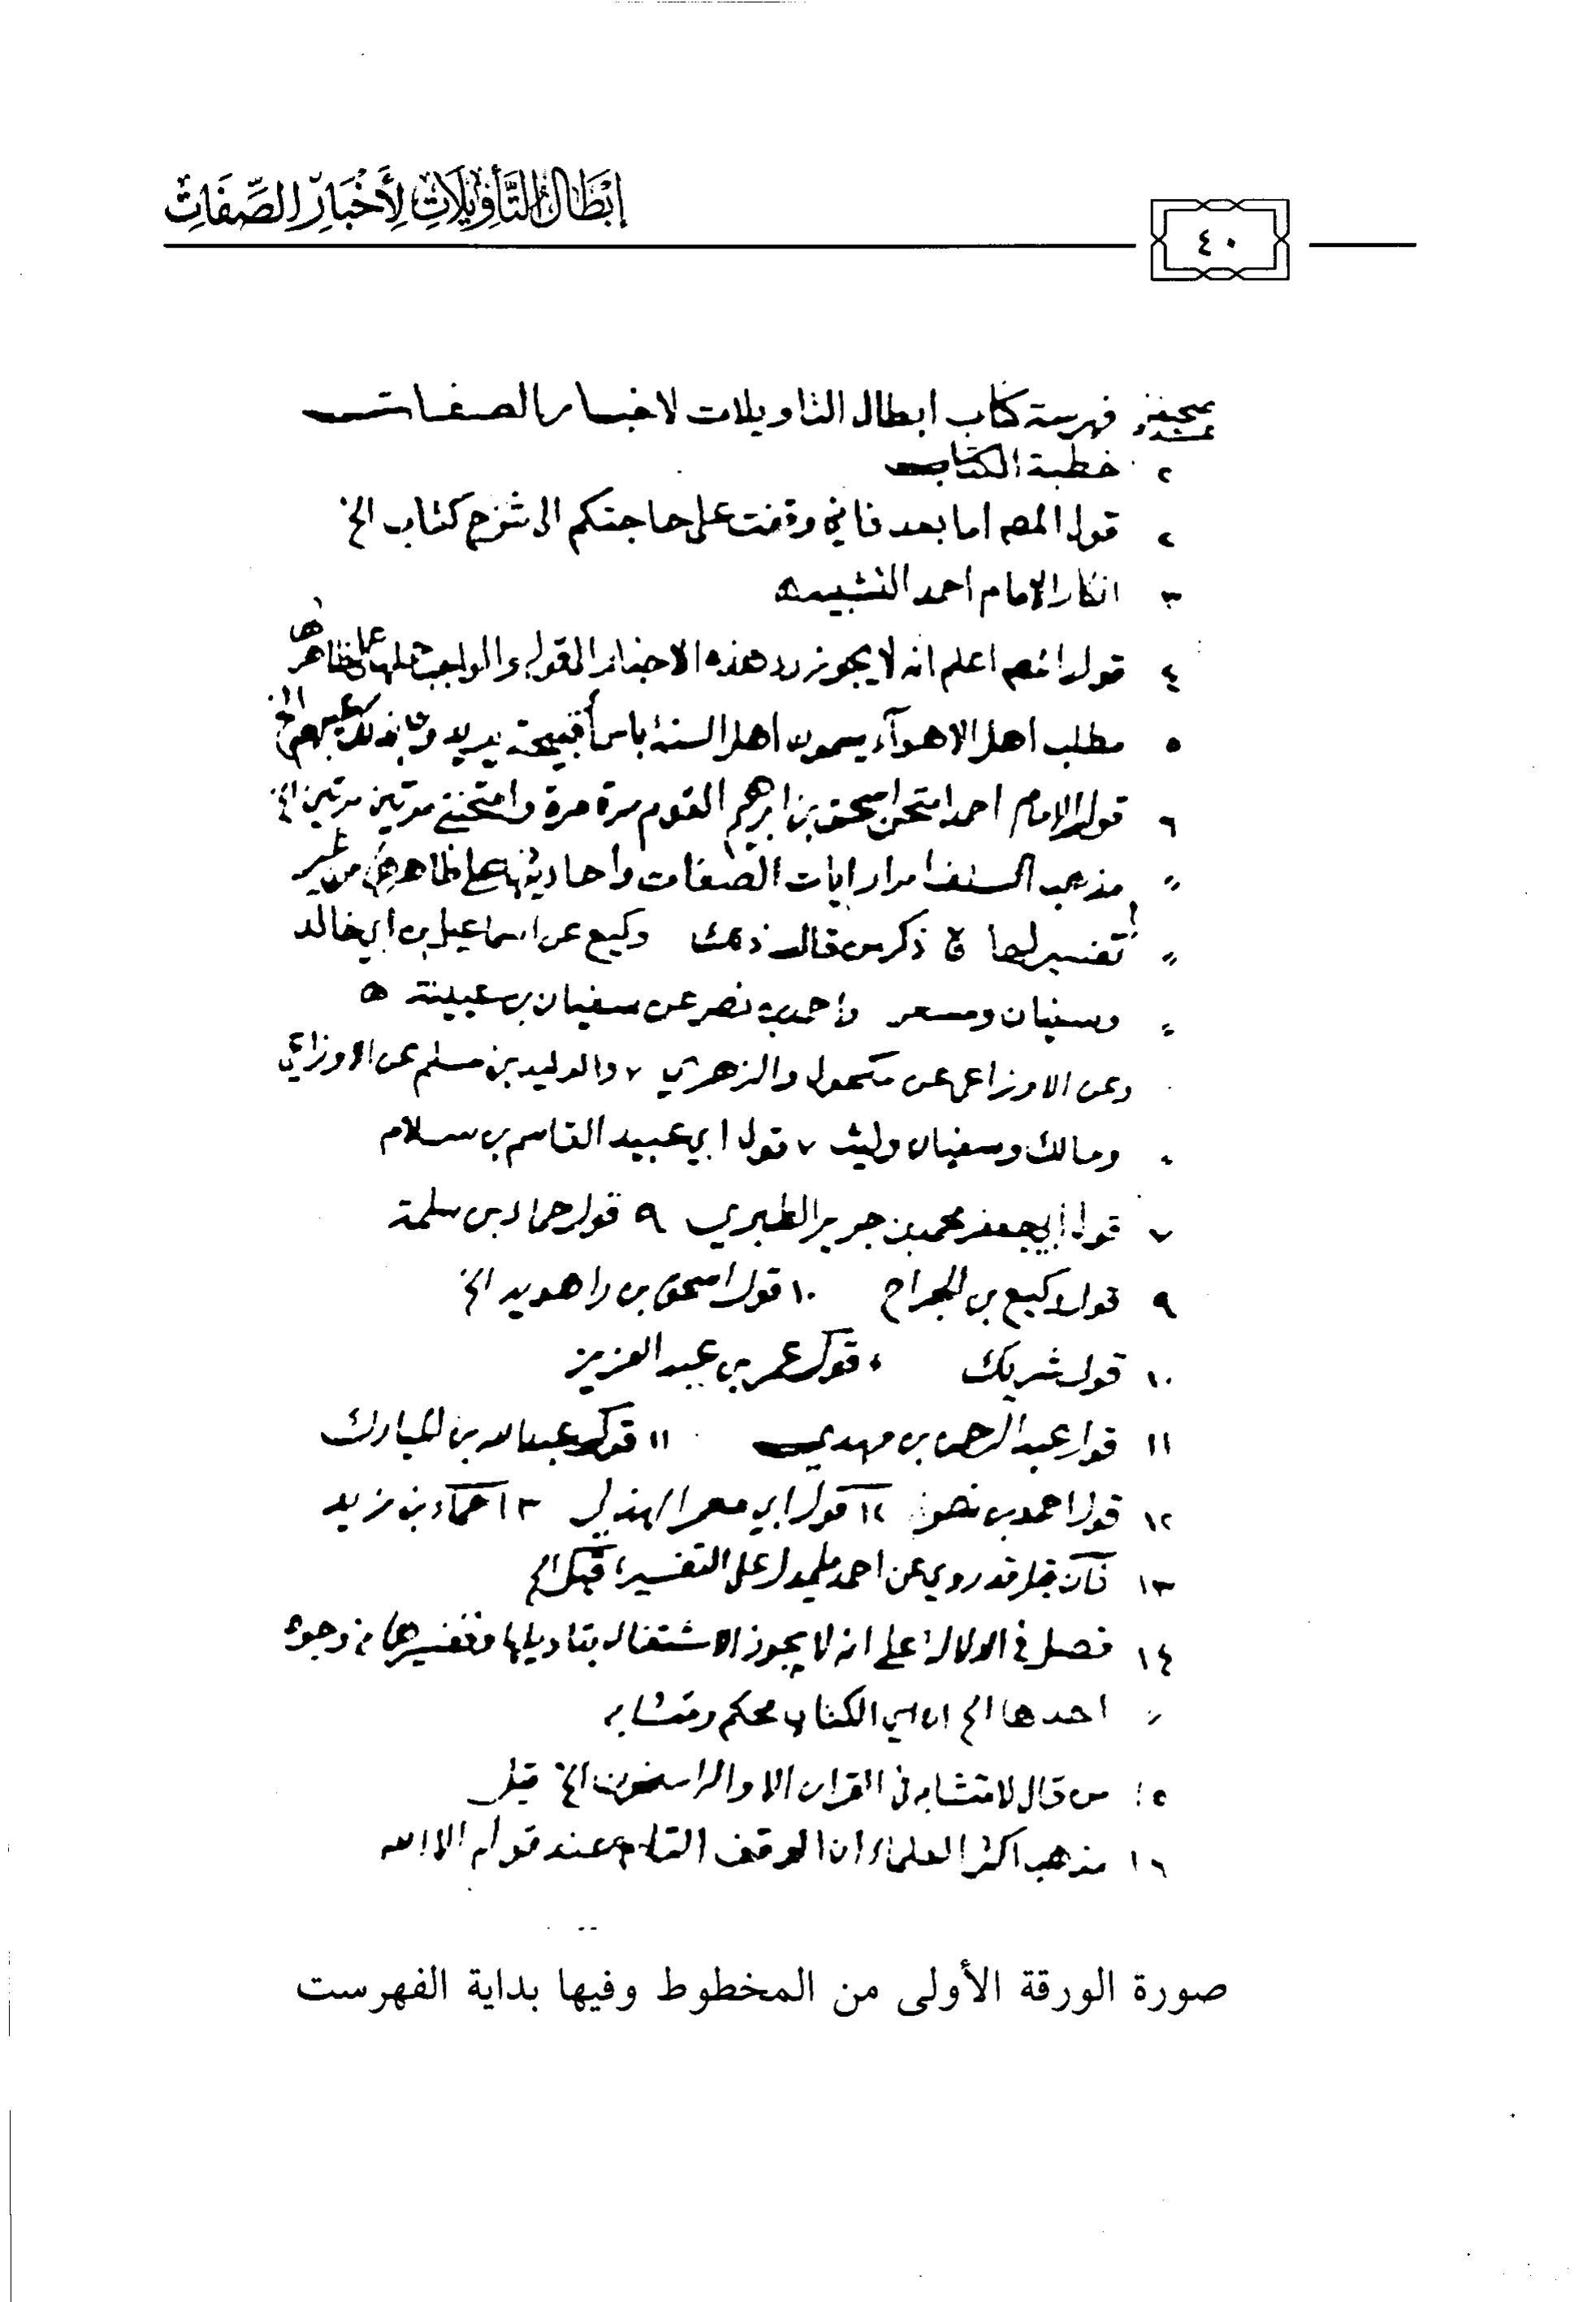 إبطال التأويلات لأخبار الصفات
٤٠
صحيفة فهرسة كتاب ابطال التاويلات لاخبار الصفات
٢ خطبة الكتاب
٢ قول المص اما بعد فاني وقفت على حاجتكم الى شرح كتاب الخ
٣ انكار الامام احمد التشبيه
٤ قول المص اعلم انه لا يجوز رد هذه الاخبار القول والواجب حملها على ظاهرها
٥ مطلب اهل الاهوآء يسمون اهل السنة باسمآ قبيحة يريدون بذلك عيبهم الخ
٦ قول الامام احمد امتحن اسحق بن ابرهيم القوم مرة مرة وامتحنني مرتين مرتين الخ
〃 مذهب السلف امرار ايات الصفات واحاديثها على ظاهرها من غير
〃 تفسير لها ذكر من قال ذلك وكيع عن اسماعيل بن ابي خالد
〃 وسفيان ومسعر واحمد بن نصر عن سفيان بن عيينة
وعن الاوزاعي عن مكحول والزهري ٧ والوليد بن مسلم عن الاوزاعي
ومالك وسفيان وليث ٧ قول ابي عبيد القاسم بن سلام
٧ قول ابي جعفر محمد بن جرير الطبري ٩ قول حماد بن سلمة
٩ قول وكيع بن الجراح ١٠ قول اسحق بن راهويه الخ
١٠ قول شريك قول عمر بن عبد العزيز
١١ قول عبد الرحمن بن مهدي ١١ قول عبد الله بن المبارك
١٢ قول احمد بن نصر ١٢ قول ابي معمر الهذلي ١٣ حماد بن زيد
١٣ فان قيل قد روي عن احمد ما يدل على التفسير قيل الخ
١٤ فصل في الدلالة على انه لا يجوز الاشتغال بتاويلها وتفسيرها من وجوه
〃 احدها الخ ان اي الكتاب محكم ومتشابه
١٥ من قال لا متشابه في القران الا والراسخون الخ قيل
١٦ مذهب اكثر العلماء ان الوقف التام عند قوله الا الله
صورة الورقة الأولى من المخطوط وفيها بداية الفهرست